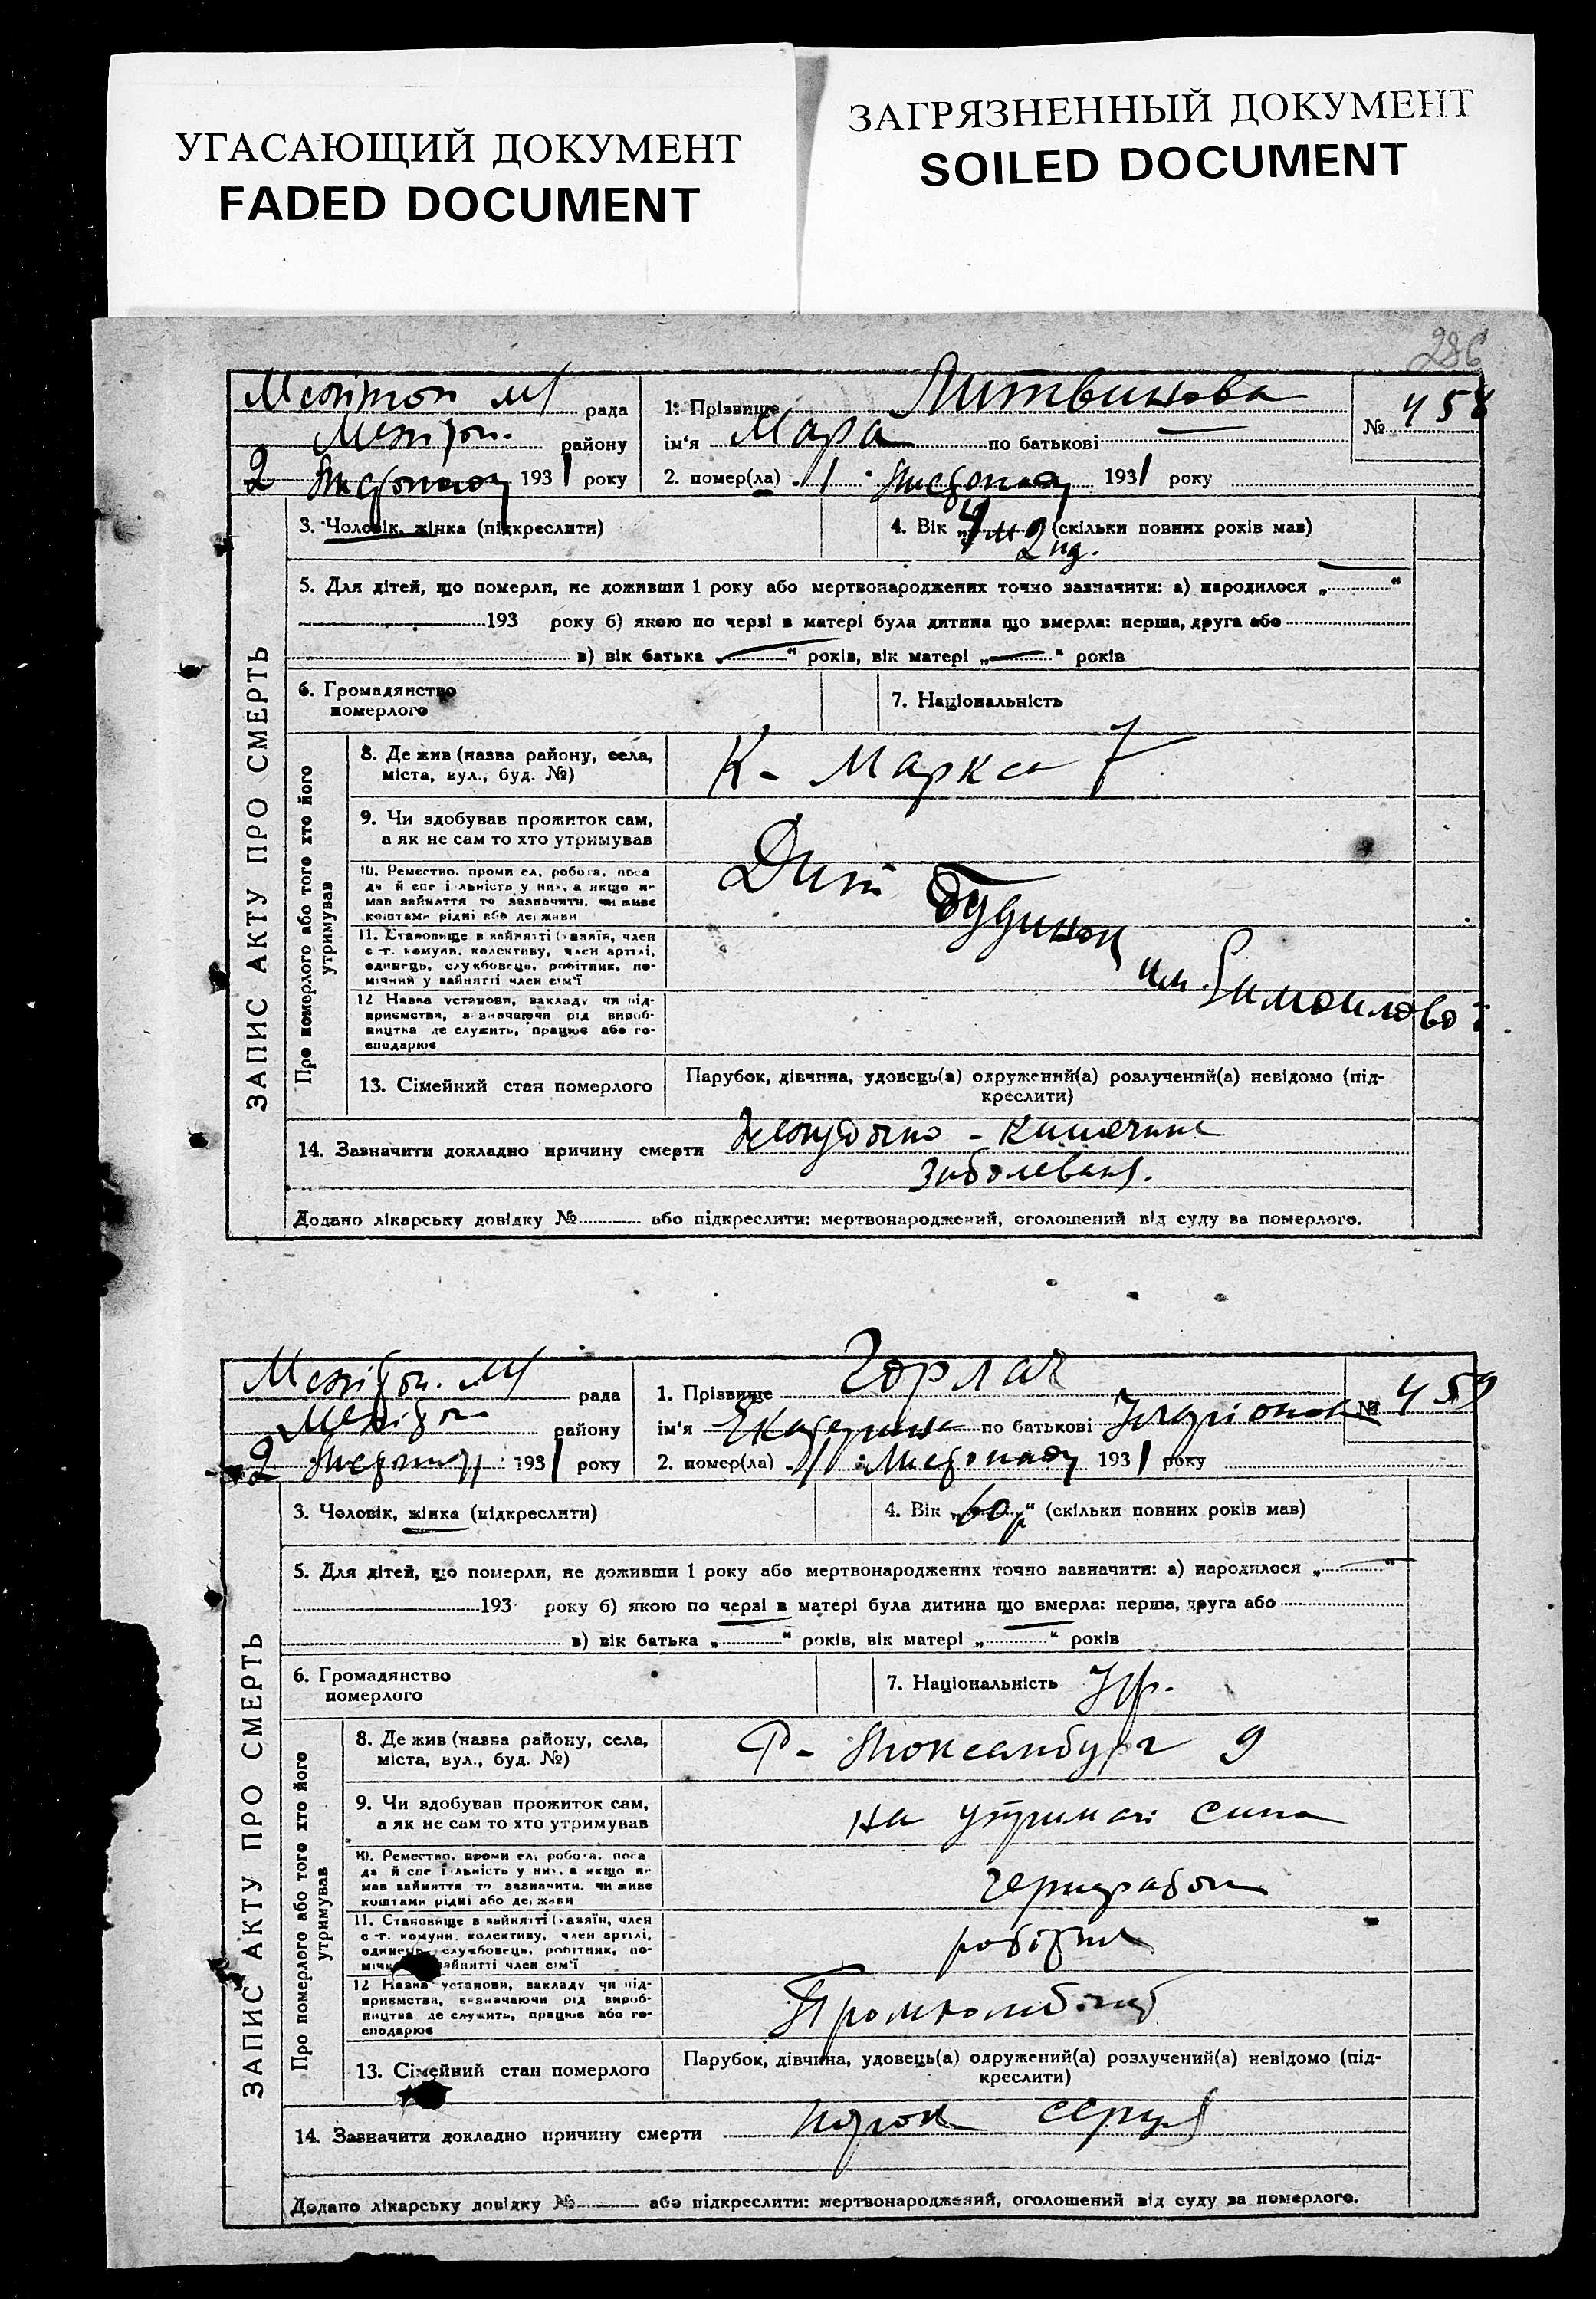 УГАСАЮЩИЙ ДОКУМЕНТ
FADED DOCUMENT
ЗАГРЯЗНЕННЫЙ ДОКУМЕНТ
SOILED DOCUMENT
286
ЗАПИС АКТУ ПРО СМЕРТЬ
рада
району
2 Листопаду 1931 року
1. Прізвище Литвинова
№ 458
ім'я Мара по батькові —
2. помер(ла) „1 Листопаду 1931 року
3. Чоловік, жінка (підкреслити)
4. Вік „4 м 2 нд. (скільки повних років мав)
5. Для дітей, що померли, не доживши 1 року або мертвонароджених точно зазначити: а) народилося „ “
193 року б) якою по черзі в матері була дитина що вмерла: перша, друга або
в) вік батька „ “ років, вік матері „ “ років
6. Громадянство
померлого
7. Національність
Про померлого або того хто його
утримував
8. Де жив (назва району, села,
міста, вул., буд. №)
К- Маркса 7
9. Чи здобував прожиток сам,
а як не сам то хто утримував
Дит будинок
им. Самойлової
10. Ремество, проми ел, робота, поса
да й спе і льність у них, а якщо не
мав зайняття то зазначити, чи живе
коштами рідні або держави
11. Становище в зайнятті (хазяїн, член
с.-г. комуни, колективу, член артілі,
одинець, службовець, робітник, по-
мічний у зайнятті член сім'ї
12 Назва установи, закладу чи під-
приємства, визначаючи рід вироб-
ництва де служить, працює або го-
сподарює
13. Сімейний стан померлого
Парубок, дівчина, удовець(а) одружений(а) розлучений(а) невідомо (під-
креслити)
14. Зазначити докладно причину смерти Желудочно - кишечние
заболеван.
Додано лікарську довідку № або підкреслити: мертвонароджений, оголошений від суду за померлого.
ЗАПИС АКТУ ПРО СМЕРТЬ
рада
району
2 Листопаду 1931 року
1. Прізвище Горлач
№ 459
ім'я Екатерина по батькові
2. помер(ла) „1 Листопаду 1931 року
3. Чоловік, жінка (підкреслити)
4. Вік „60р“ (скільки повних років мав)
5. Для дітей, що померли, не доживши 1 року або мертвонароджених точно зазначити: а) народилося „ “
193 року б) якою по черзі в матері була дитина що вмерла: перша, друга або
в) вік батька „ “ років, вік матері „ “ років
6. Громадянство
померлого
7. Національність Укр.
Про померлого або того хто його
утримував
8. Де жив (назва району, села,
міста, вул., буд. №)
Р- Люксембург 9
9. Чи здобував прожиток сам,
а як не сам то хто утримував
на утримані сина
10. Ремество, проми ел, робота, поса
да й спе і льність у них, а якщо не
мав зайняття то зазначити, чи живе
коштами рідні або держави
чернораб
11. Становище в зайнятті (хазяїн, член
с.-г. комуни, колективу, член артілі,
одинець, службовець, робітник, по-
мічний у зайнятті член сім'ї
робітник
12 Назва установи, закладу чи під-
приємства, визначаючи рід вироб-
ництва де служить, працює або го-
сподарює
Промкомбінат
13. Сімейний стан померлого
Парубок, дівчина, удовець(а) одружений(а) розлучений(а) невідомо (під-
креслити)
14. Зазначити докладно причину смерти порок серця
Додано лікарську довідку № або підкреслити: мертвонароджений, оголошений від суду за померлого.